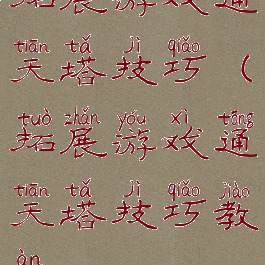 拓展游戏通
tiān tǎ jì qiǎo
天塔技巧（
tuò zhǎn yóu xì tōng
拓展游戏通
tiān tǎ jì qiǎo jiào
天塔技巧教
àn